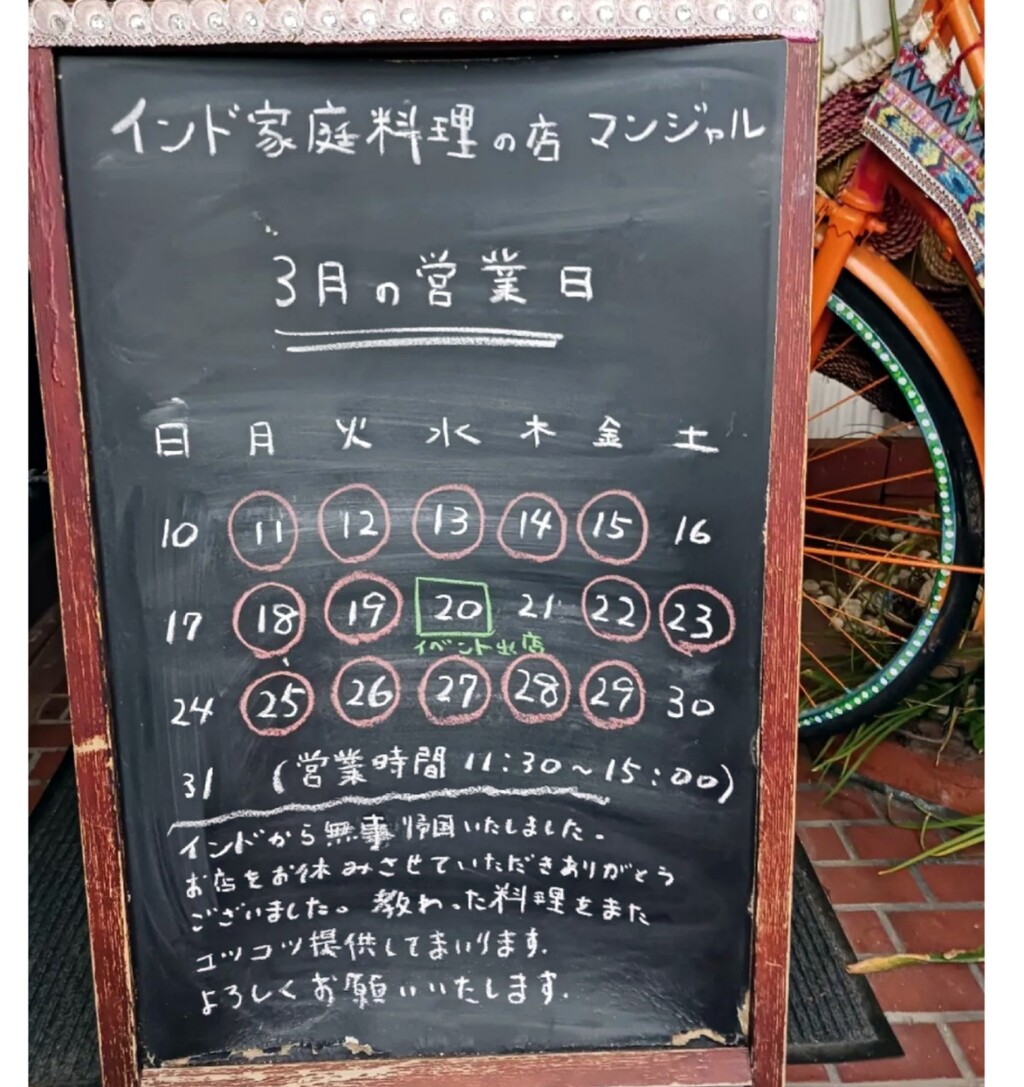 インド家庭料理の店 マンジャル
3月の営業日
日 月 火 水 木 金 土
10 11 12 13 14 15 16
17 18 19 20 21 22 23
イベント出店
24 25 26 27 28 29 30
31 (営業時間 11:30~15:00)
インドから無事帰国いたしました。
お店をお休みさせていただきありがとう
ございました。教わった料理をまた
コツコツ提供してまいります.
よろしくお願いいたします.